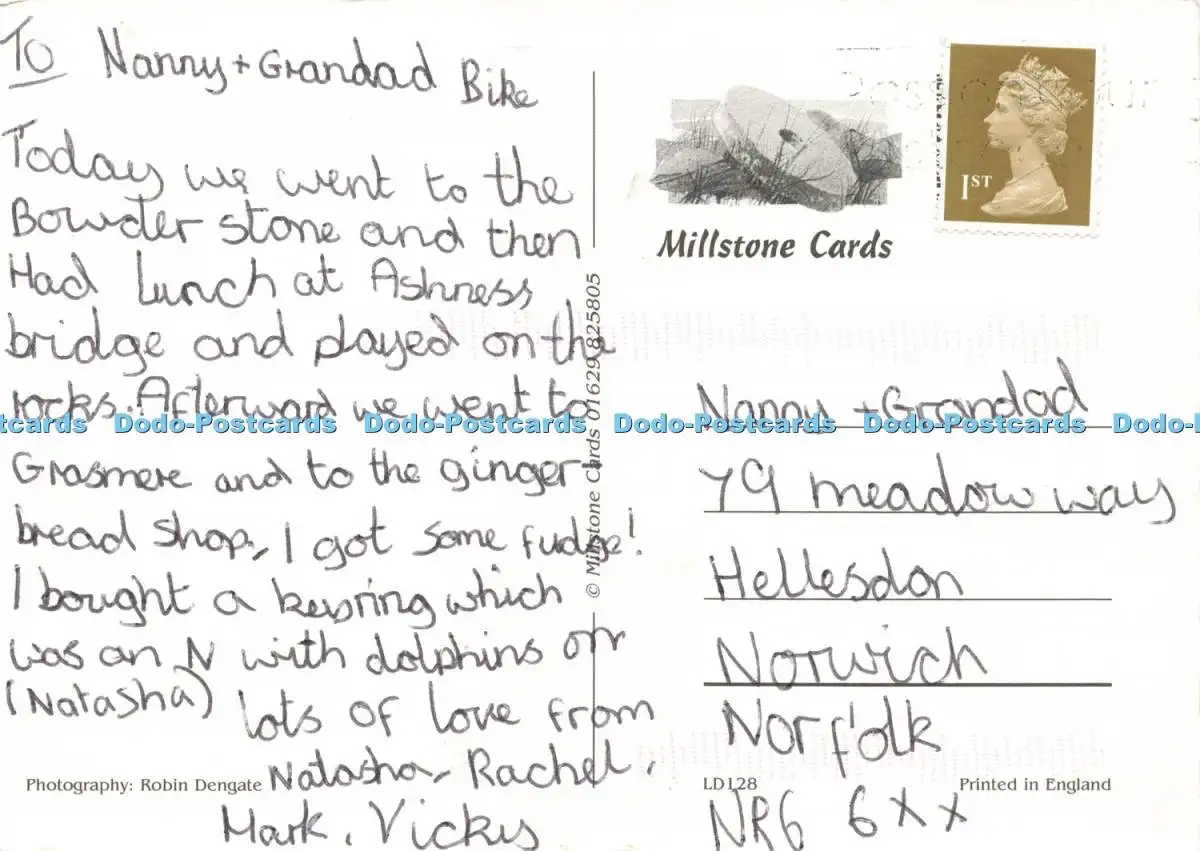 To Nanny + Grandad Bike
Today we went to the
Bowder stone and then
Had lunch at Ashness
bridge and played on the
rocks. Afterward we went to
Grasmere and to the ginger-
bread shop, I got some fudge!
I bought a keyring which
was an N with dolphins on
(Natasha) lots of love from
Natasha, Rachel,
Mark, Vicky
Photography: Robin Dengate
© Millstone Cards 01629 825805
Millstone Cards
1ST
Nanny + Grandad
79 meadow way
Hellesdon
Norwich
Norfolk
NR6 6XX
LD128
Printed in England
Dodo-Postcards Dodo-Postcards Dodo-Postcards Dodo-Postcards